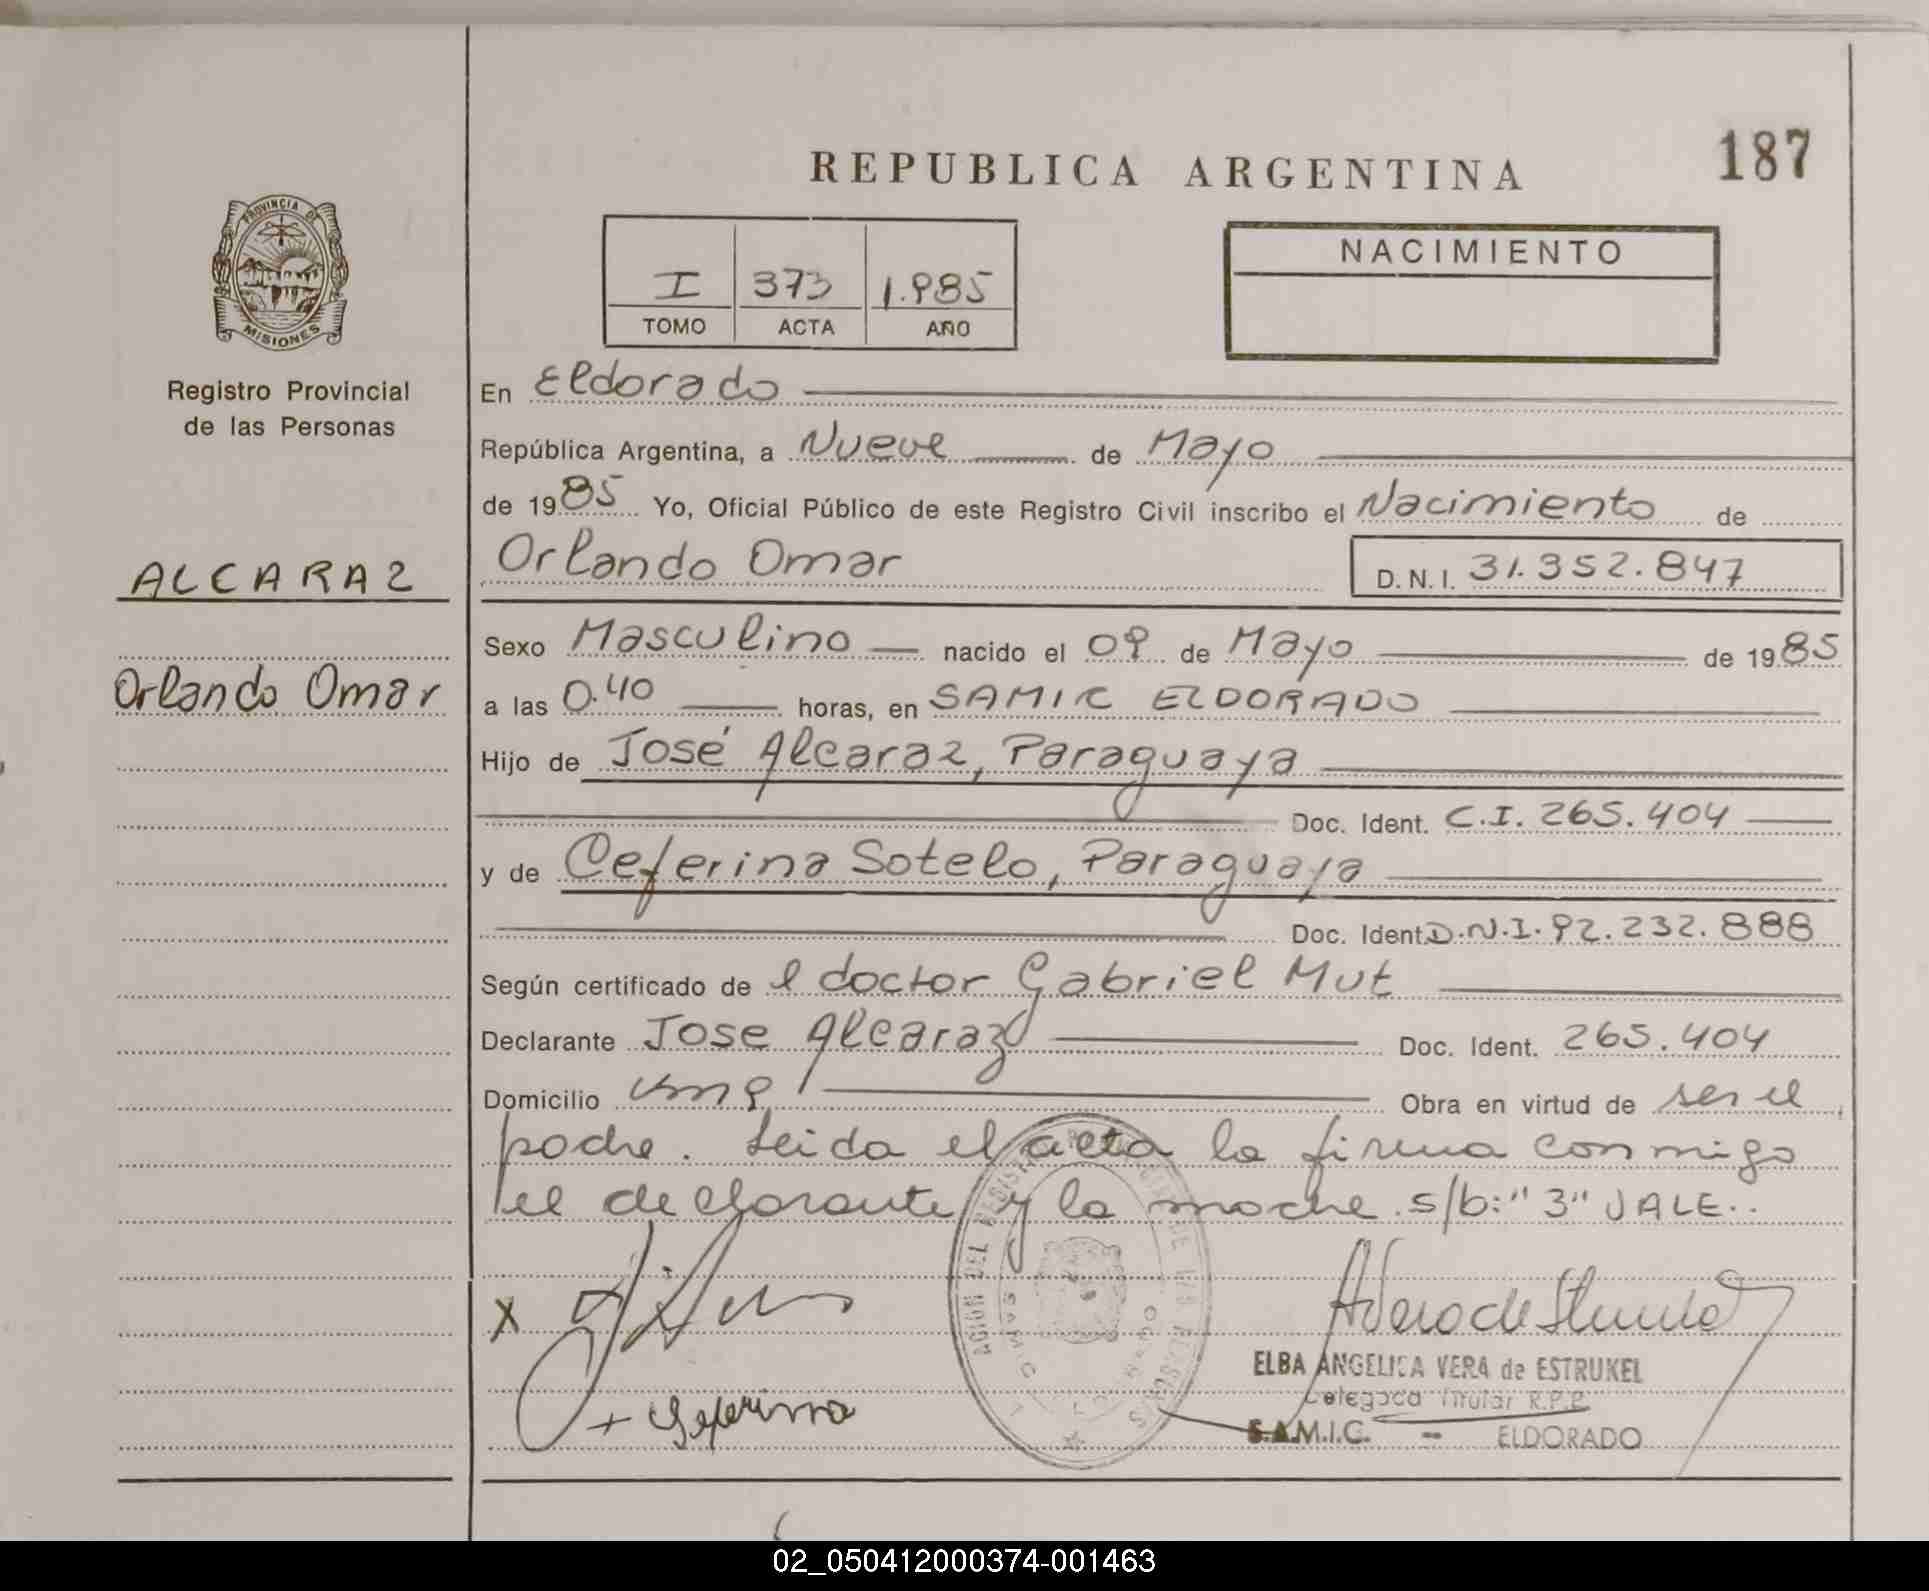 187
REPUBLICA ARGENTINA
PROVINCIA DE
MISIONES
Registro Provincial
de las Personas
I 373 1.985
TOMO ACTA AÑO
NACIMIENTO
En Eldorado
República Argentina, a Nueve de Mayo
de 1985 Yo, Oficial Público de este Registro Civil inscribo el Nacimiento de
ALCARAZ
Orlando Omar D.N.I. 31.352.847
Orlando Omar
Sexo Masculino nacido el 09 de Mayo de 1985
a las 0.40 horas, en SAMIC ELDORADO
Hijo de José Alcaraz, Paraguaya
Doc. Ident. C.I. 265.404
y de Ceferina Sotelo, Paraguaya
Doc. Ident. D.N.I. 92.232.888
Según certificado de l doctor Gabriel Mut
Declarante Jose Alcaraz Doc. Ident. 265.404
Domicilio Km 9 Obra en virtud de ser el
padre. Leida el acta la firma conmigo
el declarante y la madre. s/b: "3" VALE..
X
+ Seferina
ELBA ANGELICA VERA de ESTRUKEL
Delegada Titular R.P.P.
S.A.M.I.C. - ELDORADO
02_050412000374-001463